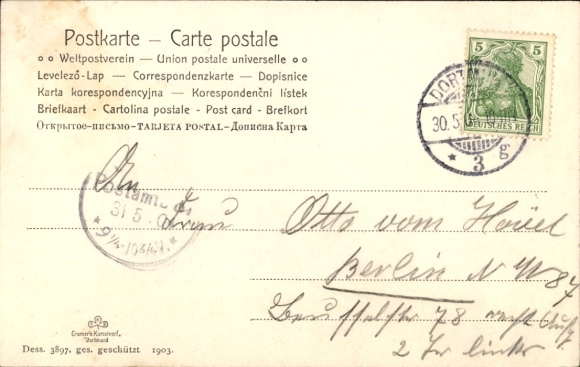 Postkarte — Carte postale
Weltpostverein — Union postale universelle
Levelező-Lap — Correspondenzkarte — Dopisnice
Karta korespondencyjna — Korespondenční lístek
Briefkaart - Cartolina postale - Post card - Brefkort
Открытое—письмо—TARJETA POSTAL—Дописна Карта
5 5
DEUTSCHES REICH
DORTMUND
30.5
* 3 g
Postamt
31 5
An
Frau Otto vom Hövel
Berlin NW 87
78
2 Tr links
Cramer's Kunstverl.
Dortmund
Dess. 3897. ges. geschützt 1903.